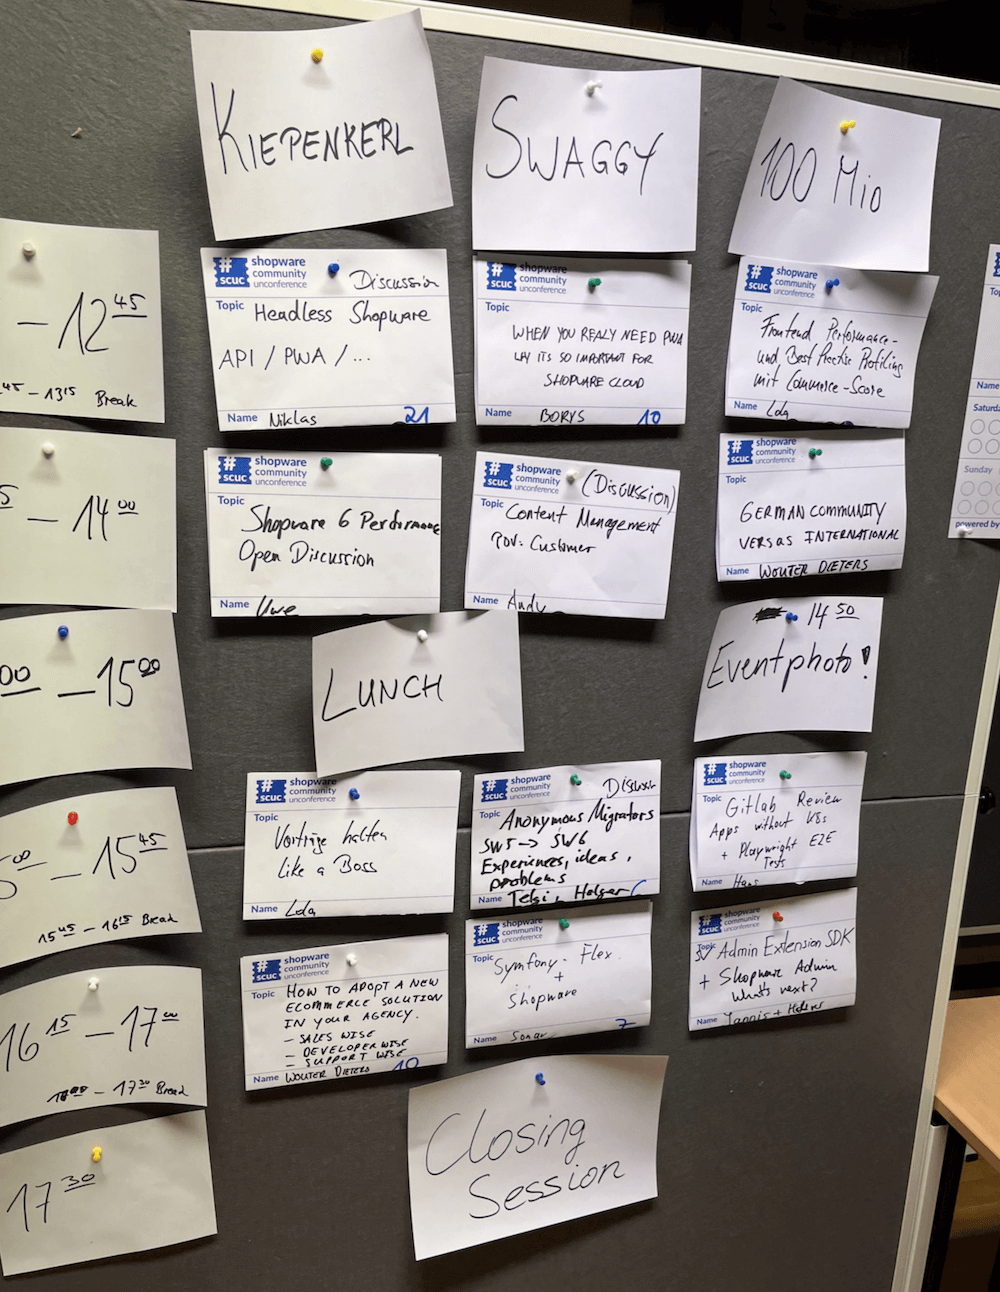 KIEPENKERL
SWAGGY
100 Mio
– 12 45
45 – 13 15 Break
# scuc shopware community unconference
Discussion
Topic Headless Shopware
API / PWA / ...
Name Niklas 21
# scuc shopware community unconference
Topic
WHEN YOU REALY NEED PWA
ITS SO IMPORTANT FOR
SHOPWARE CLOUD
Name BORYS 10
# scuc shopware community unconference
Topic
Frontend Performance-
und Best Practise Profiling
mit Commerce-Score
Name Lola
5 – 14 00
# scuc shopware community unconference
Topic
Shopware 6 Performance
Open Discussion
Name Uwe
# scuc shopware community unconference
(Discussion)
Topic Content Management
POV: Customer
Name Andy
# scuc shopware community unconference
Topic
GERMAN COMMUNITY
VERSAS INTERNATIONAL
Name WOUTER DIETERS
00 – 15 00
LUNCH
14 50
Eventphoto!
5 00 – 15 45
15 45 – 16 15 Break
# scuc shopware community unconference
Topic
Vorträge halten
Like a Boss
Name Lola
# scuc shopware community unconference
Topic Anonymous Migrators
SW5 -> SW6
Experiences, ideas,
problems
Name Holger
# scuc shopware community unconference
Topic Gitlab Review
Apps without K8s
+ Playwright E2E
Tests
Name Hans
16 15 – 17 00
– 17 30 Break
# scuc shopware community unconference
Topic HOW TO ADOPT A NEW
ECOMMERCE SOLUTION
IN YOUR AGENCY.
– SALES WISE
– DEVELOPER WISE
– SUPPORT WISE
Name WOUTER DIETERS 10
# scuc shopware community unconference
Topic Symfony-Flex
+
Shopware
Name 7
# scuc shopware community unconference
Topic Admin Extension SDK
+ Shopware Admin
What's next?
Name Jannis +
17 30
Closing
Session
# sc
To
Name
Saturda
Sunday
powered by